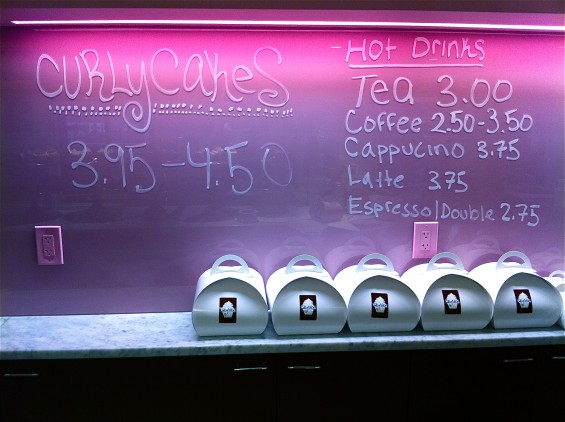 CURLYCAKES
3.95-4.50
-HOT DRINKS
Tea 3.00
Coffee 2.50-3.50
Cappucino 3.75
Latte 3.75
Espresso/Double 2.75